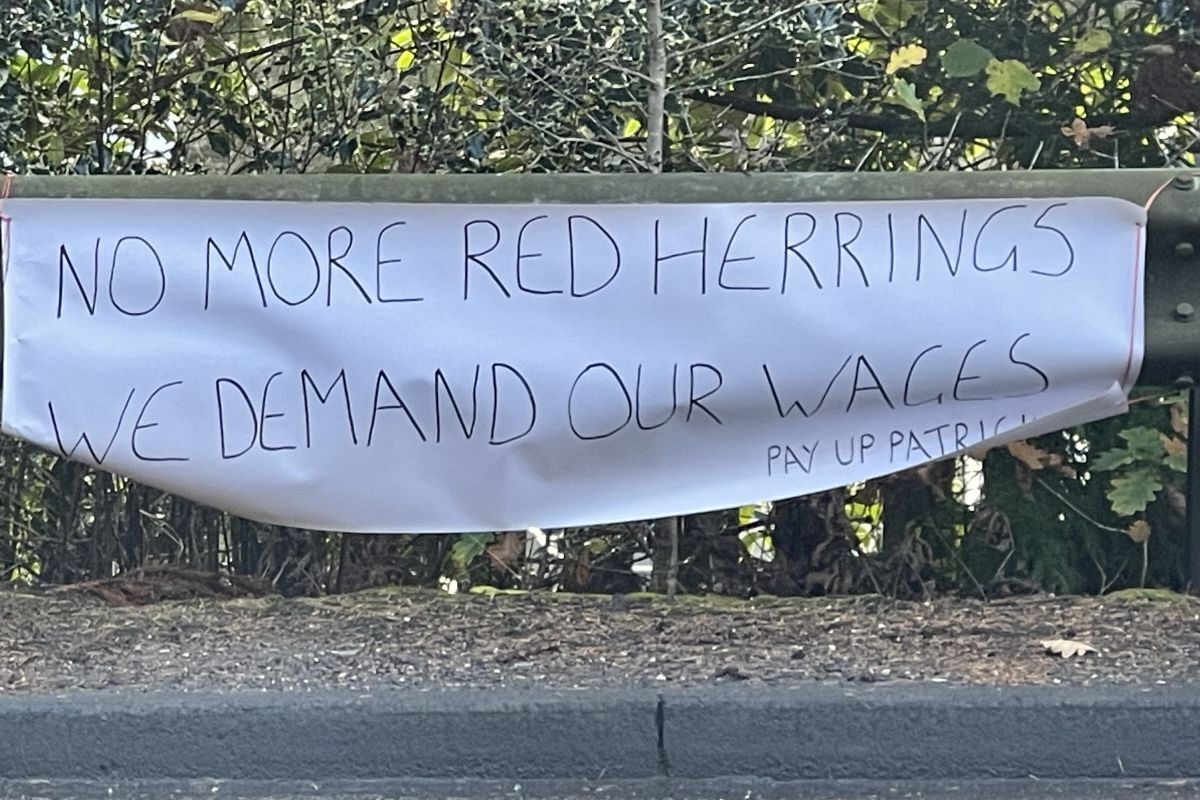 NO MORE RED HERRINGS
WE DEMAND OUR WAGES
PAY UP PATRIC